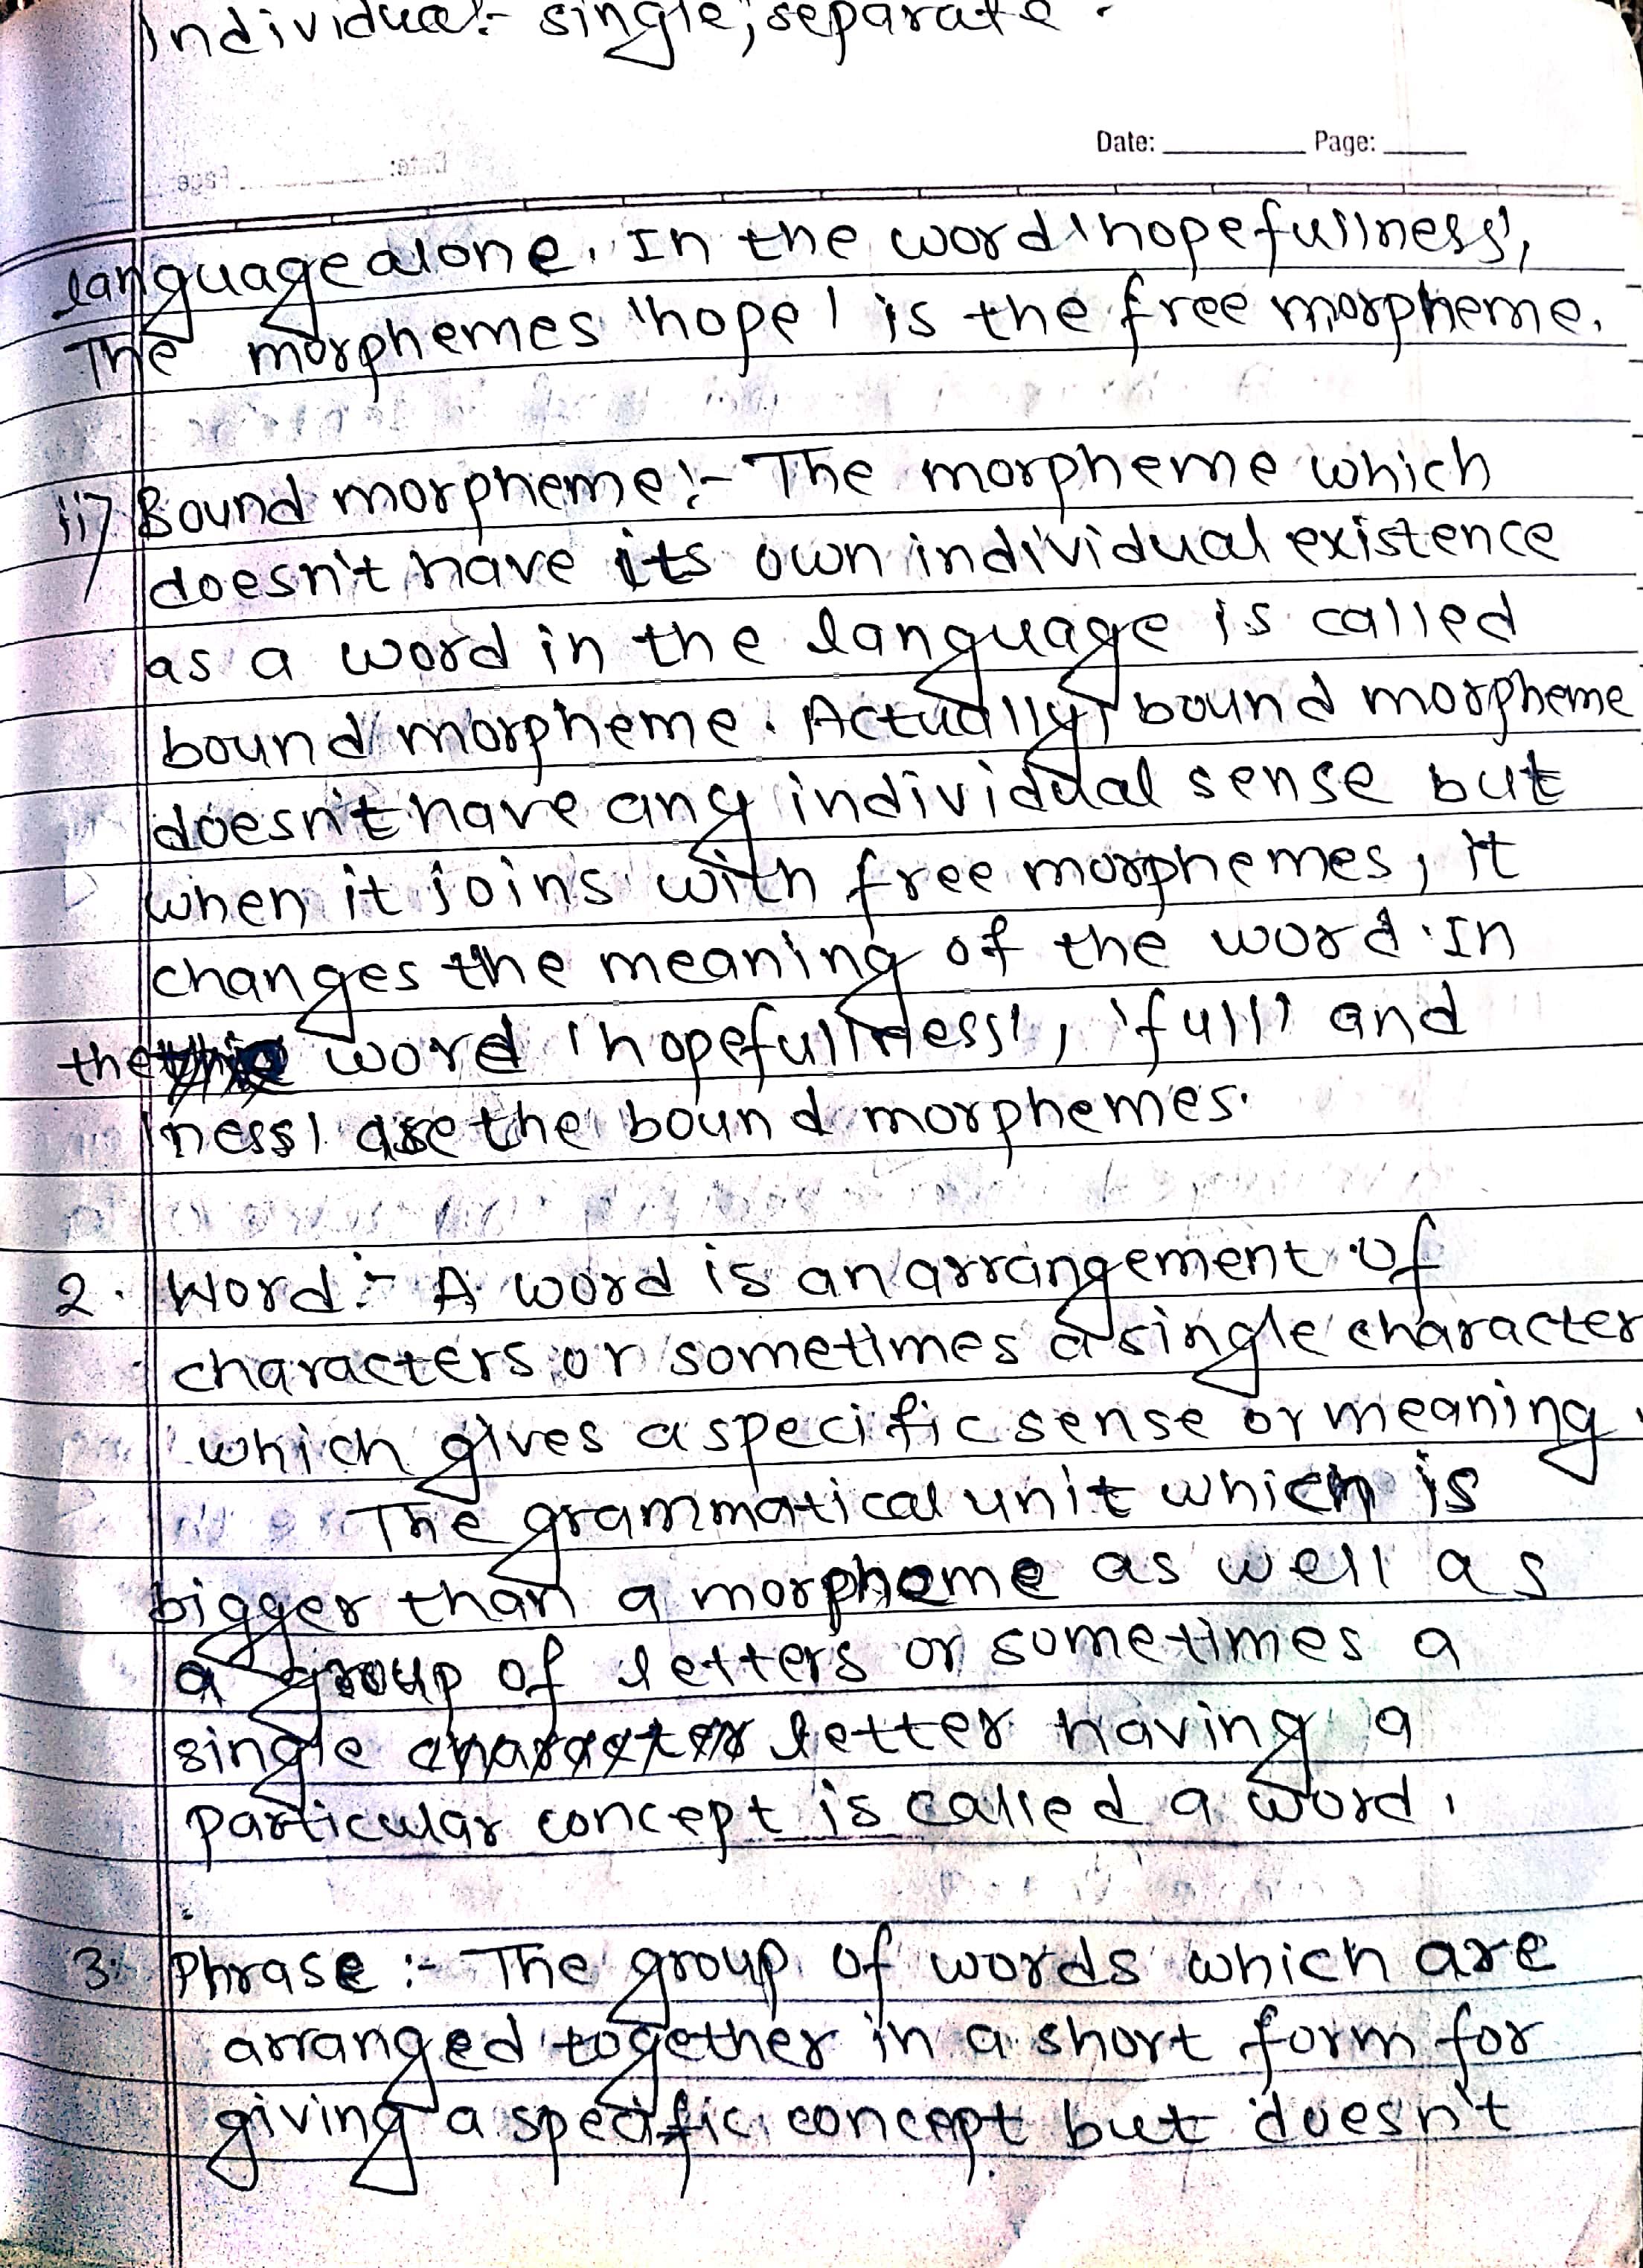 individual:- single, separate.
Date: Page:
language alone. In the word 'hopefullness',
The morphemes 'hope' is the free morpheme.
ii) Bound morpheme:- The morpheme which
doesn't have its own individual existence
as a word in the language is called
bound morpheme. Actually, bound morpheme
doesn't have any individual sense but
when it joins with free morphemes, it
changes the meaning of the word. In
the word 'hopefullness', 'full' and
ness' are the bound morphemes.
2. Word:- A word is an arrangement of
characters or sometimes a single character
which gives a specific sense or meaning.
The grammatical unit which is
bigger than a morpheme as well as
a group of letters or sometimes a
single character letter having a
particular concept is called a word.
3. Phrase :- The group of words which are
arranged together in a short form for
giving a specific concept but doesn't